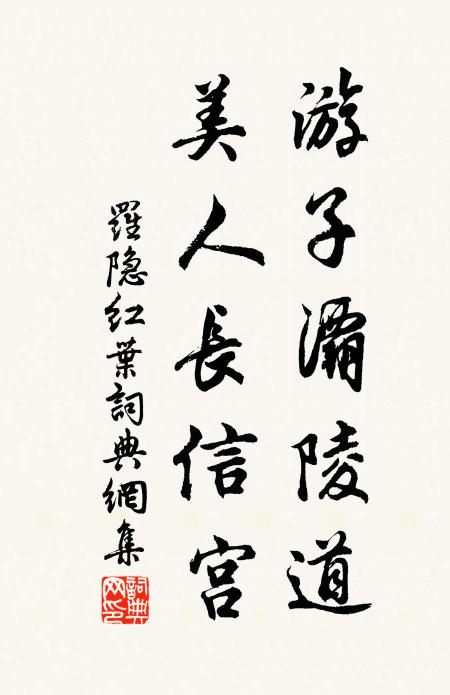 游子灞陵道
美人長信宮
羅隐红葉詞典網集
詞典网印